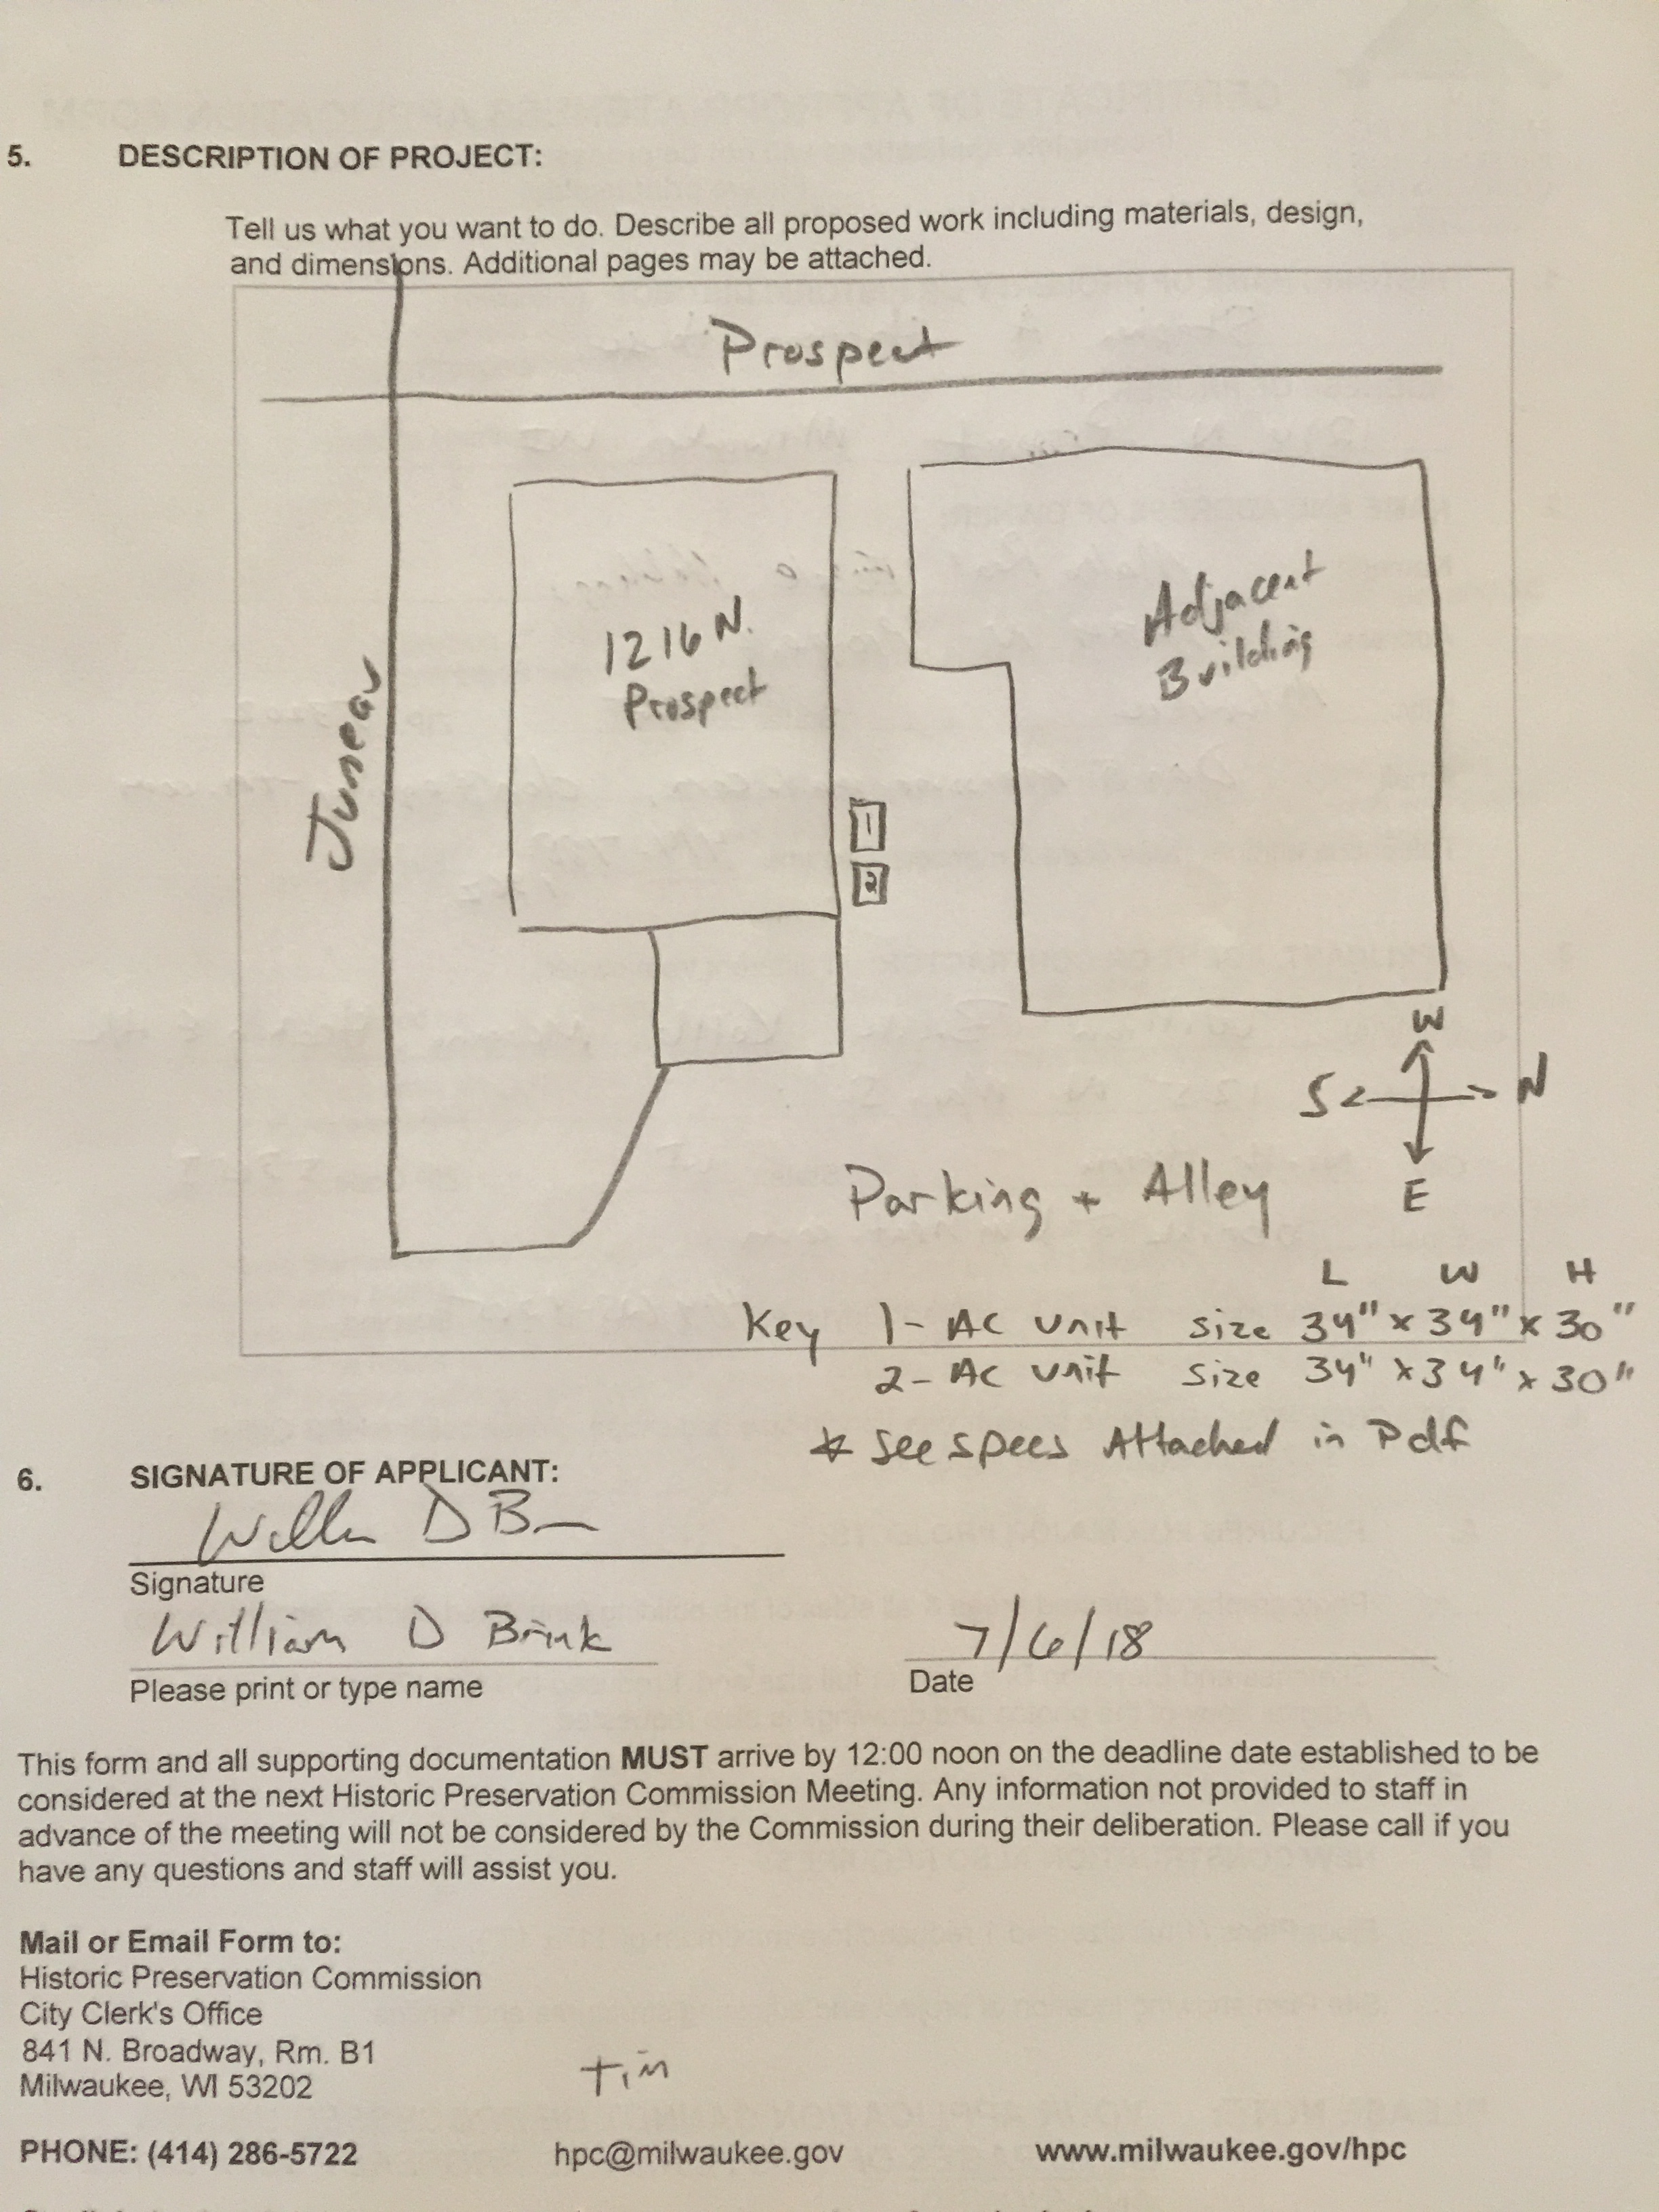 5. DESCRIPTION OF PROJECT:
Tell us what you want to do. Describe all proposed work including materials, design,
and dimensions. Additional pages may be attached.
Prospect
Juneau
1216 N.
Prospect
Adjacent
Building
1
2
W
S N
E
Parking + Alley
L W H
Key 1- AC unit size 34" x 34" x 30"
2- AC unit size 34" x 34" x 30"
* See specs Attached in Pdf
6. SIGNATURE OF APPLICANT:
Signature
William D Brink
7/6/18
Please print or type name
Date
This form and all supporting documentation MUST arrive by 12:00 noon on the deadline date established to be
considered at the next Historic Preservation Commission Meeting. Any information not provided to staff in
advance of the meeting will not be considered by the Commission during their deliberation. Please call if you
have any questions and staff will assist you.
Mail or Email Form to:
Historic Preservation Commission
City Clerk's Office
841 N. Broadway, Rm. B1
Milwaukee, WI 53202
Tim
PHONE: (414) 286-5722 hpc@milwaukee.gov www.milwaukee.gov/hpc